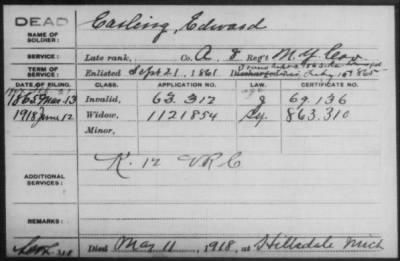 DEAD
Easling, Edward
NAME OF SOLDIER:
SERVICE: Late rank, Co. A, 8 Reg't M.Y. Cav
TERM OF SERVICE: Enlisted Sept 21, 1861 Discharged
DATE OF FILING. CLASS. APPLICATION NO. LAW. CERTIFICATE NO.
1865 Mar 13 Invalid, 63.312 69.136
1918 June 12 Widow, 1121854 863.310
Minor,
ADDITIONAL SERVICES: K. 12 V R C
REMARKS:
Died May 11, 1918, at Hillsdale Mich